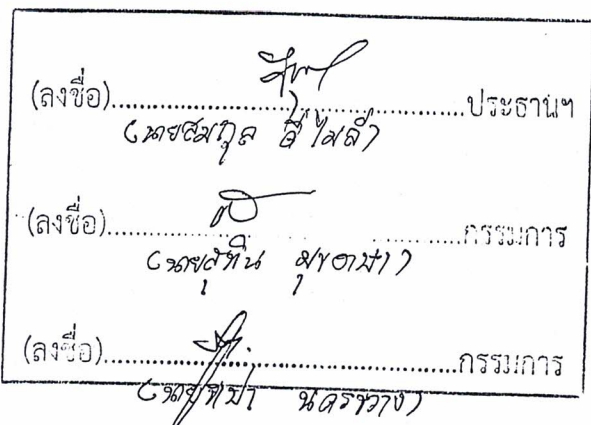 (ลงชื่อ)..............................................ประธานฯ
(นายสมกุล
(ลงชื่อ)..............................................กรรมการ
(นายสุทิน
(ลงชื่อ)..............................................กรรมการ
นครขวาง)